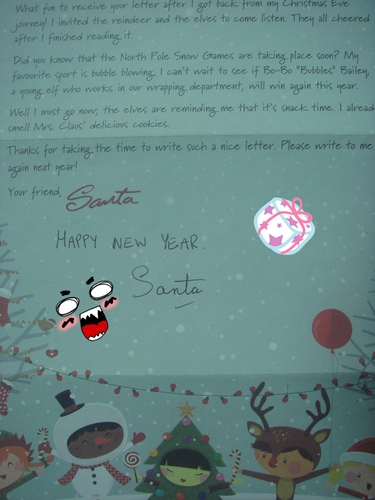 What fun to receive your letter after I got back from my Christmas Eve
journey! I invited the reindeer and the elves to come listen. They all cheered
after I finished reading it.
Did you know that the North Pole Snow Games are taking place soon? My
favourite sport is bubble blowing. I can't wait to see if Bo-Bo "Bubbles" Bailey,
a young elf who works in our wrapping department, will win again this year.
Well I must go now; the elves are reminding me that it's snack time. I alread
smell Mrs. Claus' delicious cookies.
Thanks for taking the time to write such a nice letter. Please write to me
again next year!
Your friend,
Santa
HAPPY NEW YEAR.
Santa